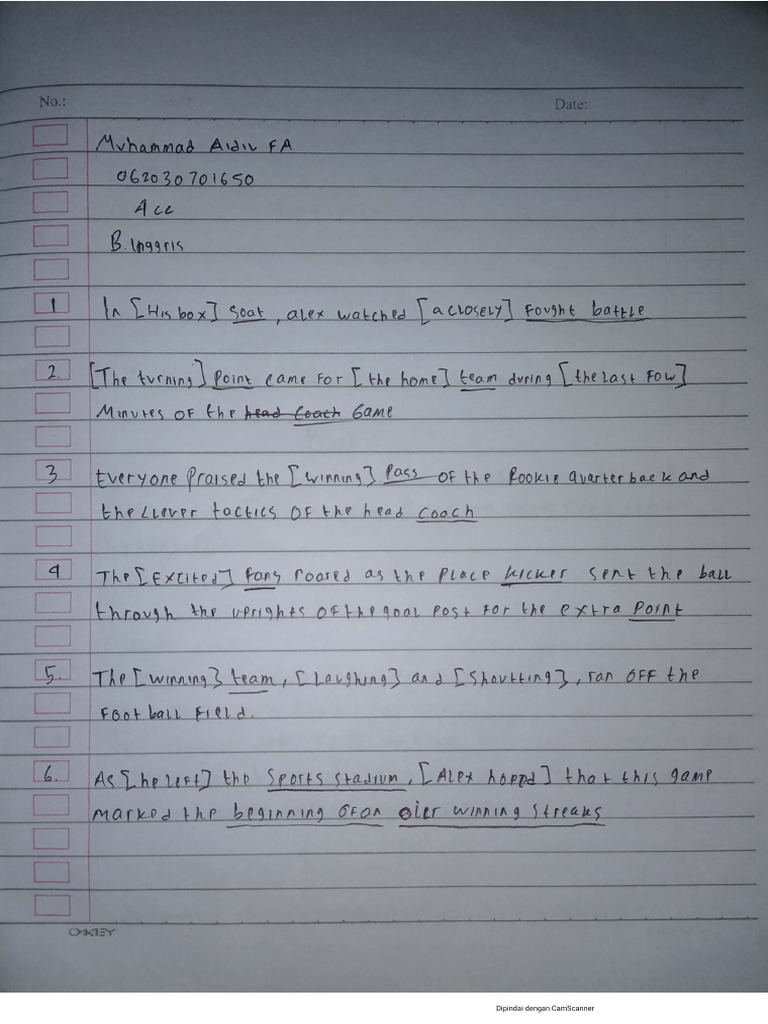 No.: Date:
Muhammad Aidil FA
062030701650
4 CC
B. Inggris
1 In [His box] Seat, alex watched [a closely] fought battle
2. [The turning] Point came for [the home] team during [the last Few]
Minutes of the head coach Game
3 Everyone Praised the [winning] Pass of the Rookie quarterback and
the clever tactics of the head coach
4 The [Excited] fans roared as the Place kicker sent the ball
through the uprights of the goal Post for the extra Point
5. The [winning] team, [Laughing] and [Shoutting], ran off the
Foot ball Field.
6. As [he left] the Sports stadium, [Alex hoped] that this game
marked the beginning of an winning streaks
OAKLEY
Dipindai dengan CamScanner